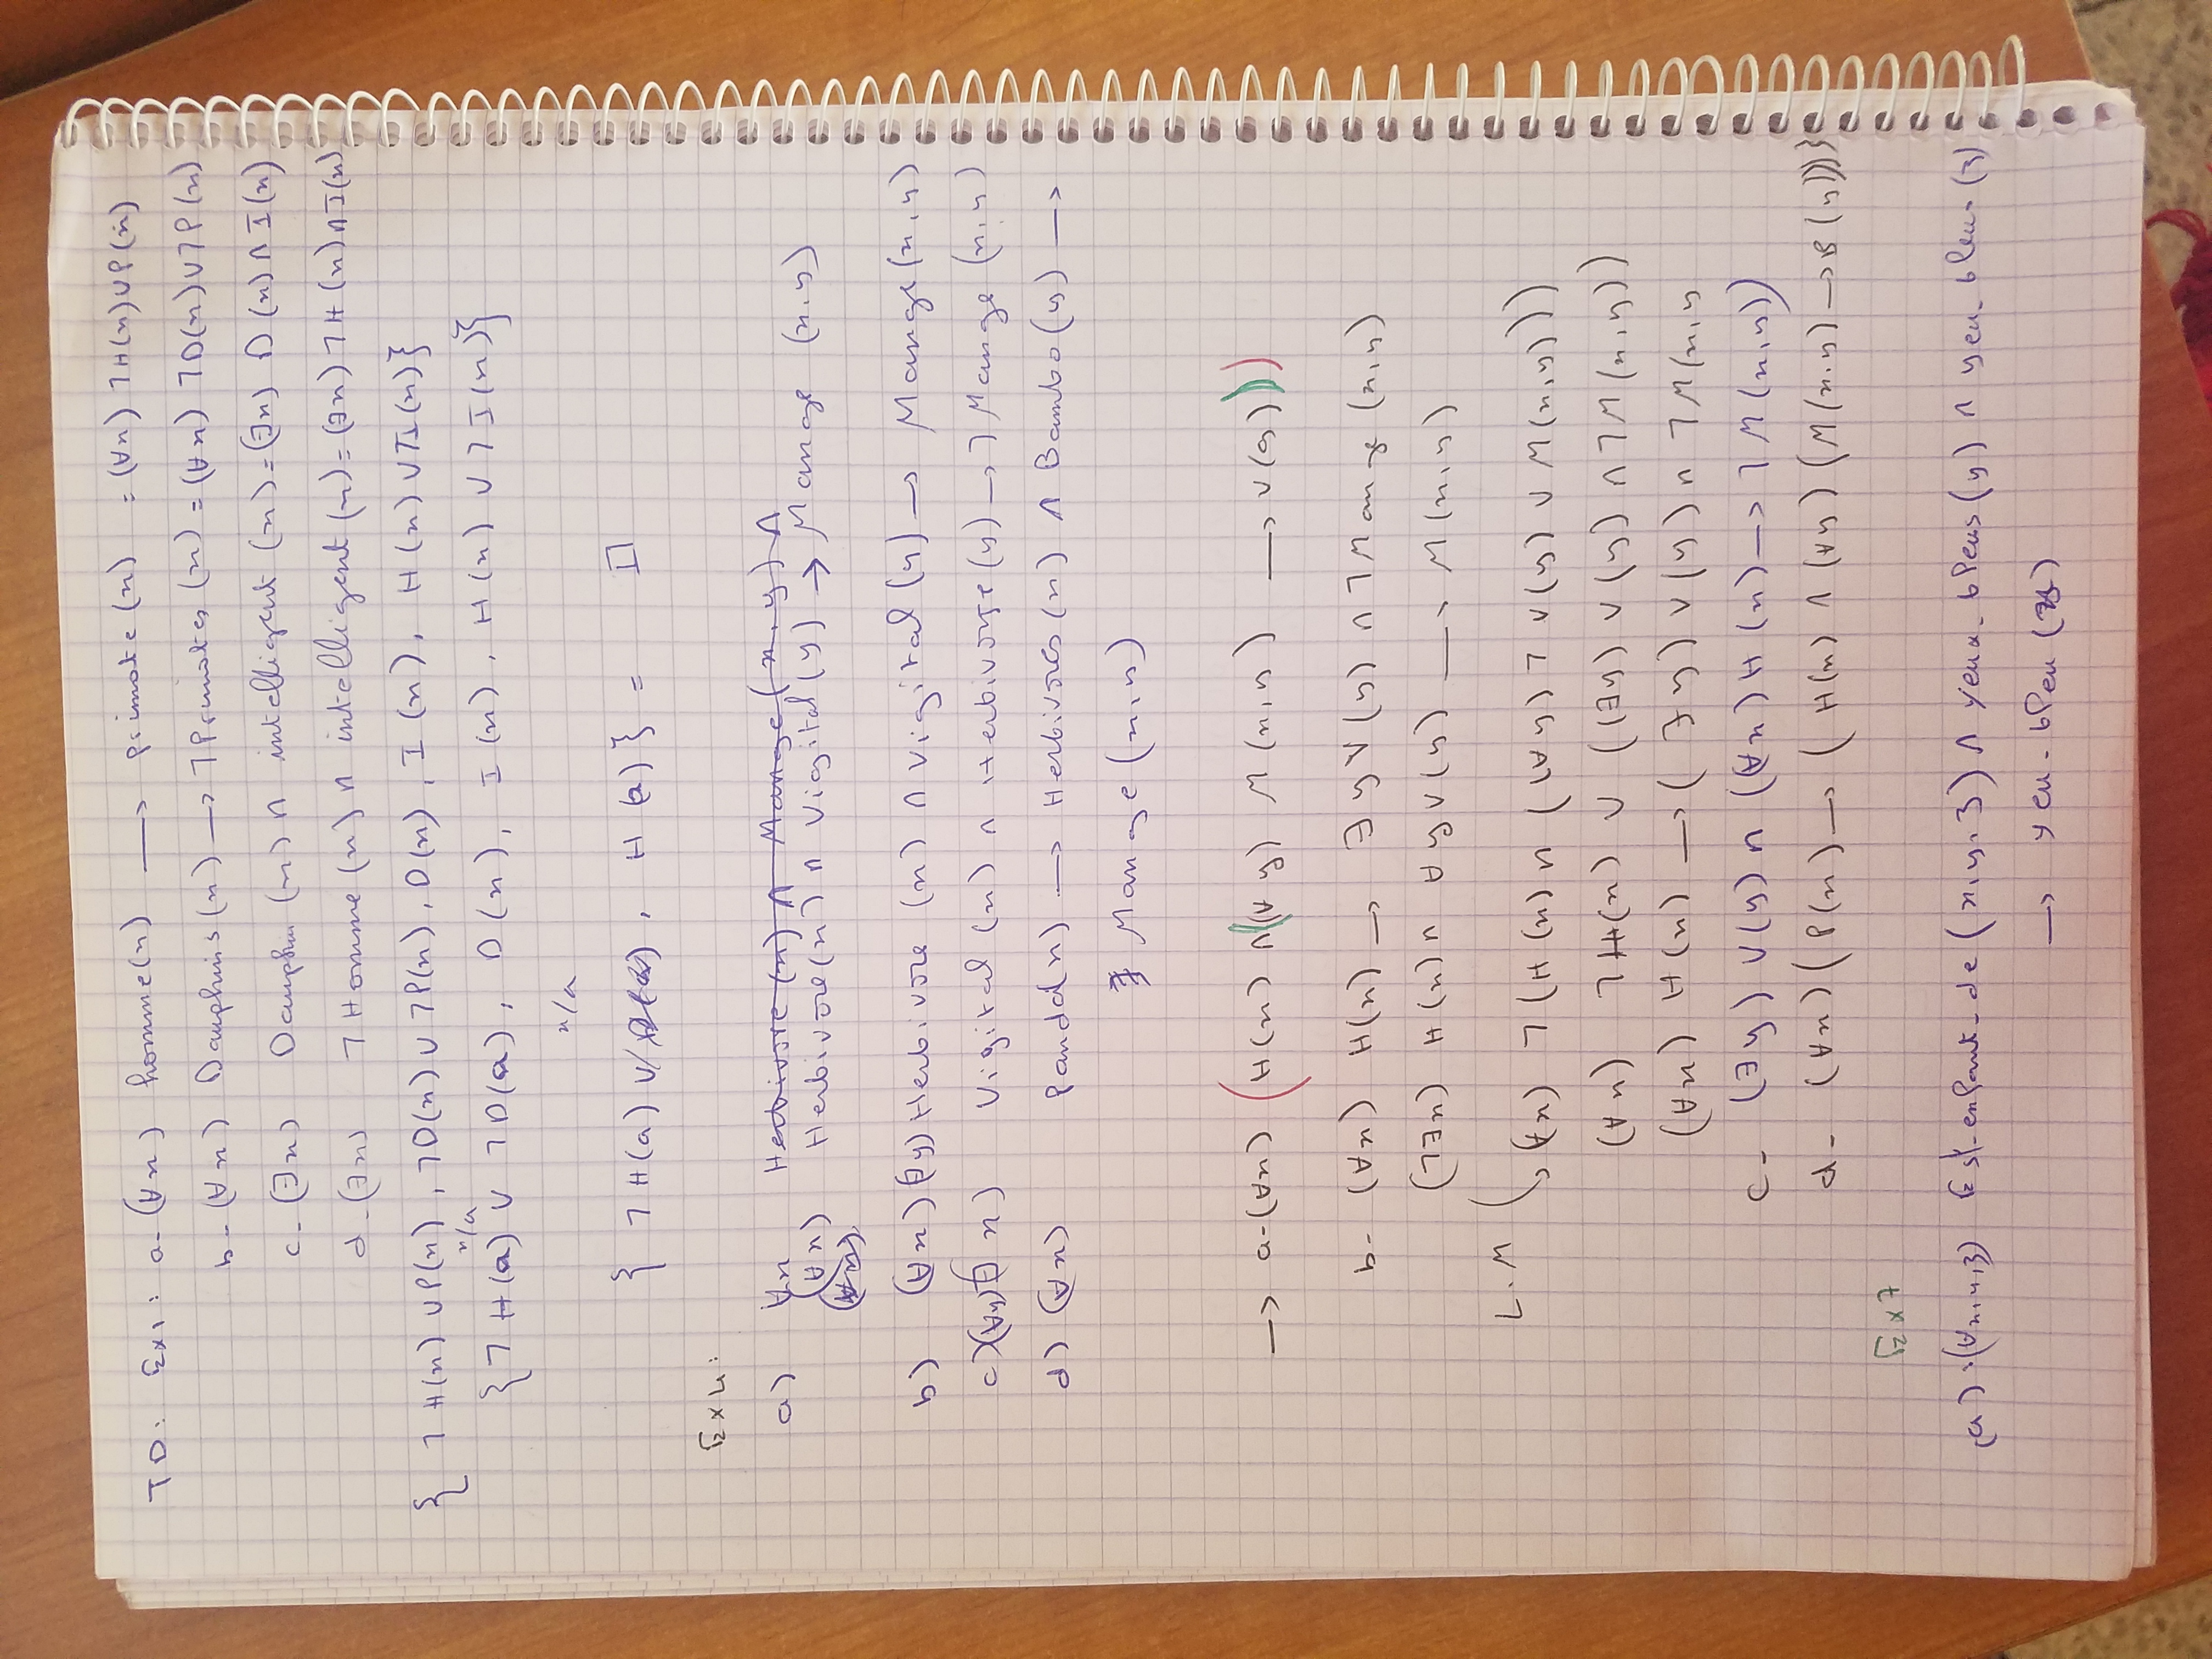 TD: Ex1: a- (∀x) homme(x) → primate(x) = (∀x) ¬H(x)∨P(x)
b- (∀x) Dauphins(x) → ¬Primates(x) = (∀x) ¬D(x)∨¬P(x)
c- (∃x) Dauphin(x) ∧ intelligent(x) = (∃x) D(x)∧I(x)
d- (∃x) ¬Homme(x) ∧ intelligent(x) = (∃x) ¬H(x)∧I(x)
{ ¬H(x)∨P(x), ¬D(x)∨¬P(x), D(x), I(x), H(x)∨¬I(x)}
x/a
{ ¬H(a) ∨ ¬D(a), D(x), I(x), H(x) ∨ ¬I(x)}
x/a
{ ¬H(a) ∨, H(a)} = □
Ex4:
a) ∀x Herbivore(x) ∧ Mange(x,y) ∧
(∀x) Herbivore(x) ∧ Vigital(y) → Mange(x,y)
(∀x)
b) (∀x)(∃y) Herbivore(x) ∧ Vigital(y) → Mange(x,y)
c) (∀y) x) Vigital(x) ∧ Herbivore(y) → ¬Mange(x,y)
d) (∀x) Panda(x) → Herbivores(x) ∧ Bambo(y) →
Mange(x,y)
→ a-(∀x) (H(x) ∧((∀y) M(x,y) → V(y)))
b- (∀x) H(x) → ∃y V(y) ∧ ¬Mange(x,y)
(¬∃x) H(x) ∧ ∀y V(y) → M(x,y)
L.M (→(∀x) ¬(H(x) ∧ ((∀y) ¬V(y) ∨ M(x,y)))
(∀x) ¬H(x) ∨ ((∃y) V(y) ∧ ¬M(x,y))
(∀x) H(x) → (∃y) V(y) ∧ ¬M(x,y
c- (∃y) V(y) ∧ ((∀x) H(x) → ¬M(x,y))
d- (∀x) (P(x) → (H(x) ∧ (∀y) (M(x,y) → B(y))))
Ex7
(a) .(∀x,y,z) Est_enfant_de(x,y,z) ∧ yeux_bleus(y) ∧ yeux_bleus(z)
→ yeu_bleu(x)